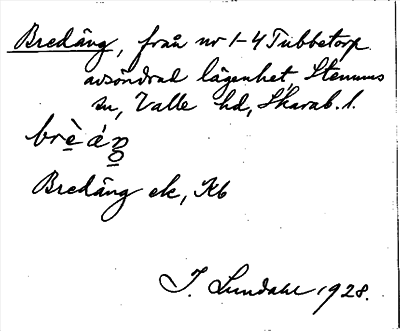 Bredäng, från nr 1-4 Tubbetorp
avsöndrad lägenhet, Stenums
sn, Valle hd, Skarab. l.
brè áŋ
Bredäng ek, Kb
I. Lundahl 1928.